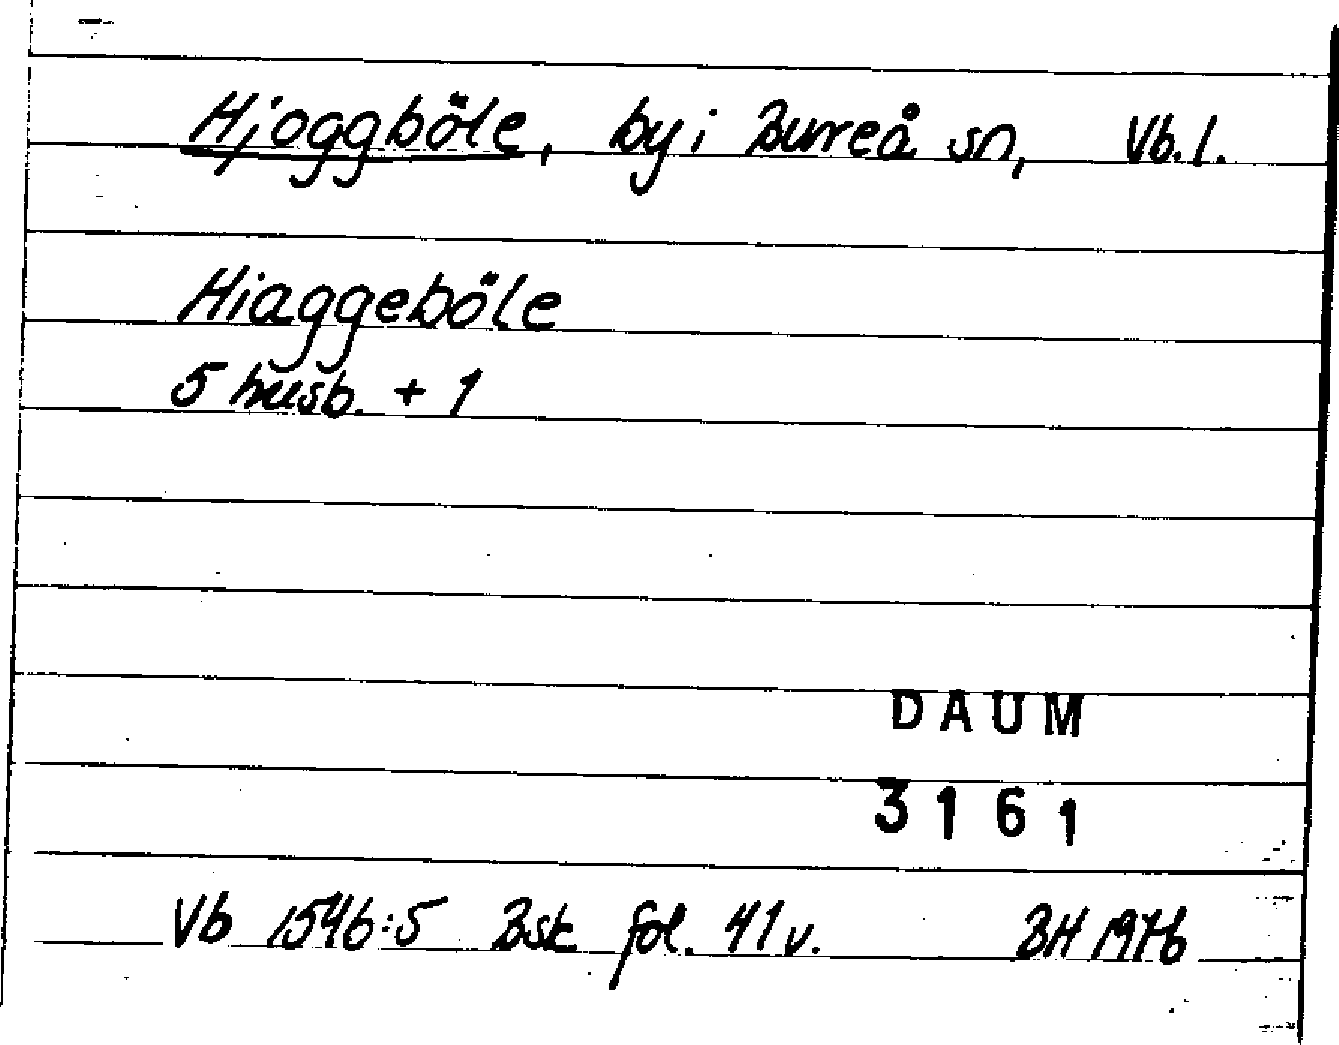 Hjoggböle, by i Bureå sn, Vb. l.
Hiaggeböle
5 husb. + 1
DAUM
3161
Vb 1546:5 Bsk fol. 41v. BH 1976